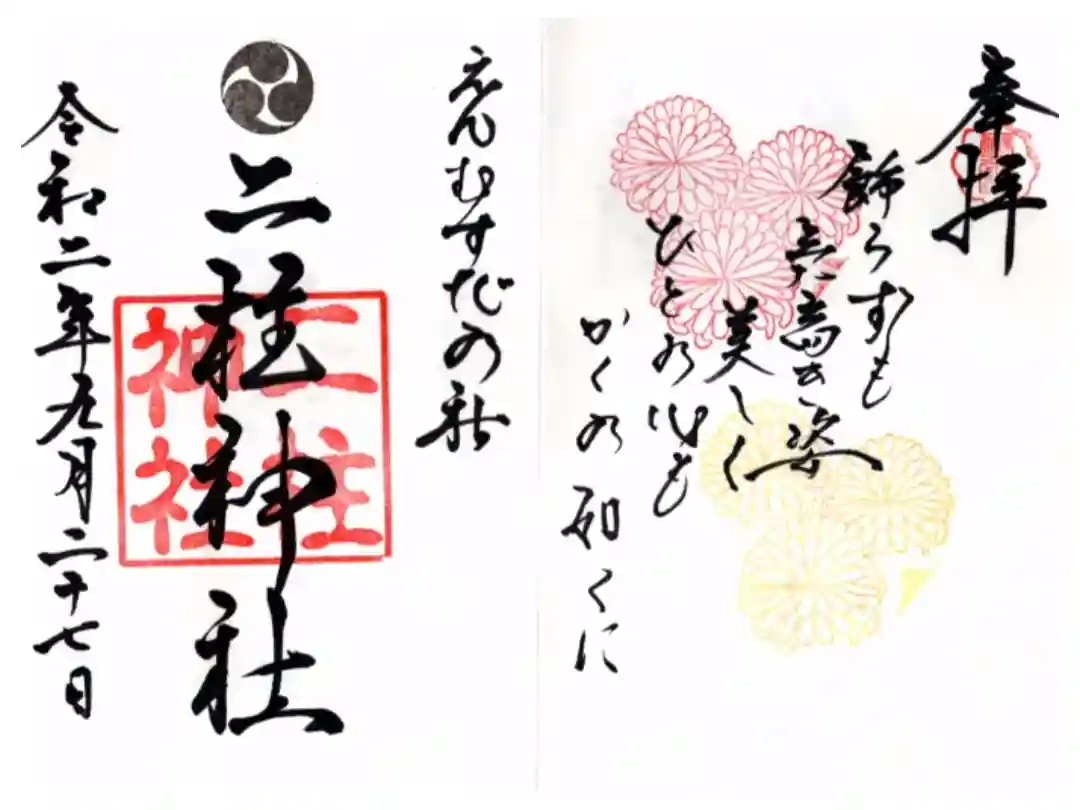 奉拝
飾らずも
高き姿
美しく
ひとの心も
かくの如くに
えんむすびの社
二柱神社
二柱
神社
令和二年九月二十七日